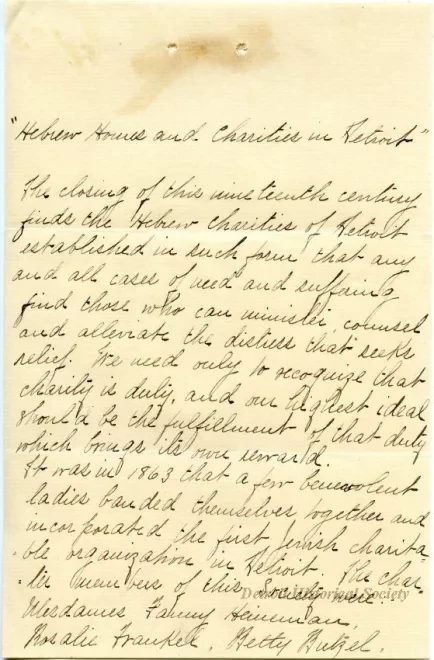 "Hebrew Homes and Charities in Detroit"
The closing of this nineteenth century
finds the Hebrew Charities of Detroit
established in such form that any
and all cases of need and suffering
find those who can minister, counsel
and alleviate the distress that seeks
relief. We need only to recognize that
charity is duty, and our highest ideal
should be the fulfillment of that duty
which brings its own reward.
It was in 1863 that a few benevolent
ladies banded themselves together and
incorporated the first Jewish charita-
ble organization in Detroit. The char-
ter members of this Society were:
Detroit Historical Society
Mesdames Fanny Heineman,
Rosalie Frankel, Betty Butzel,